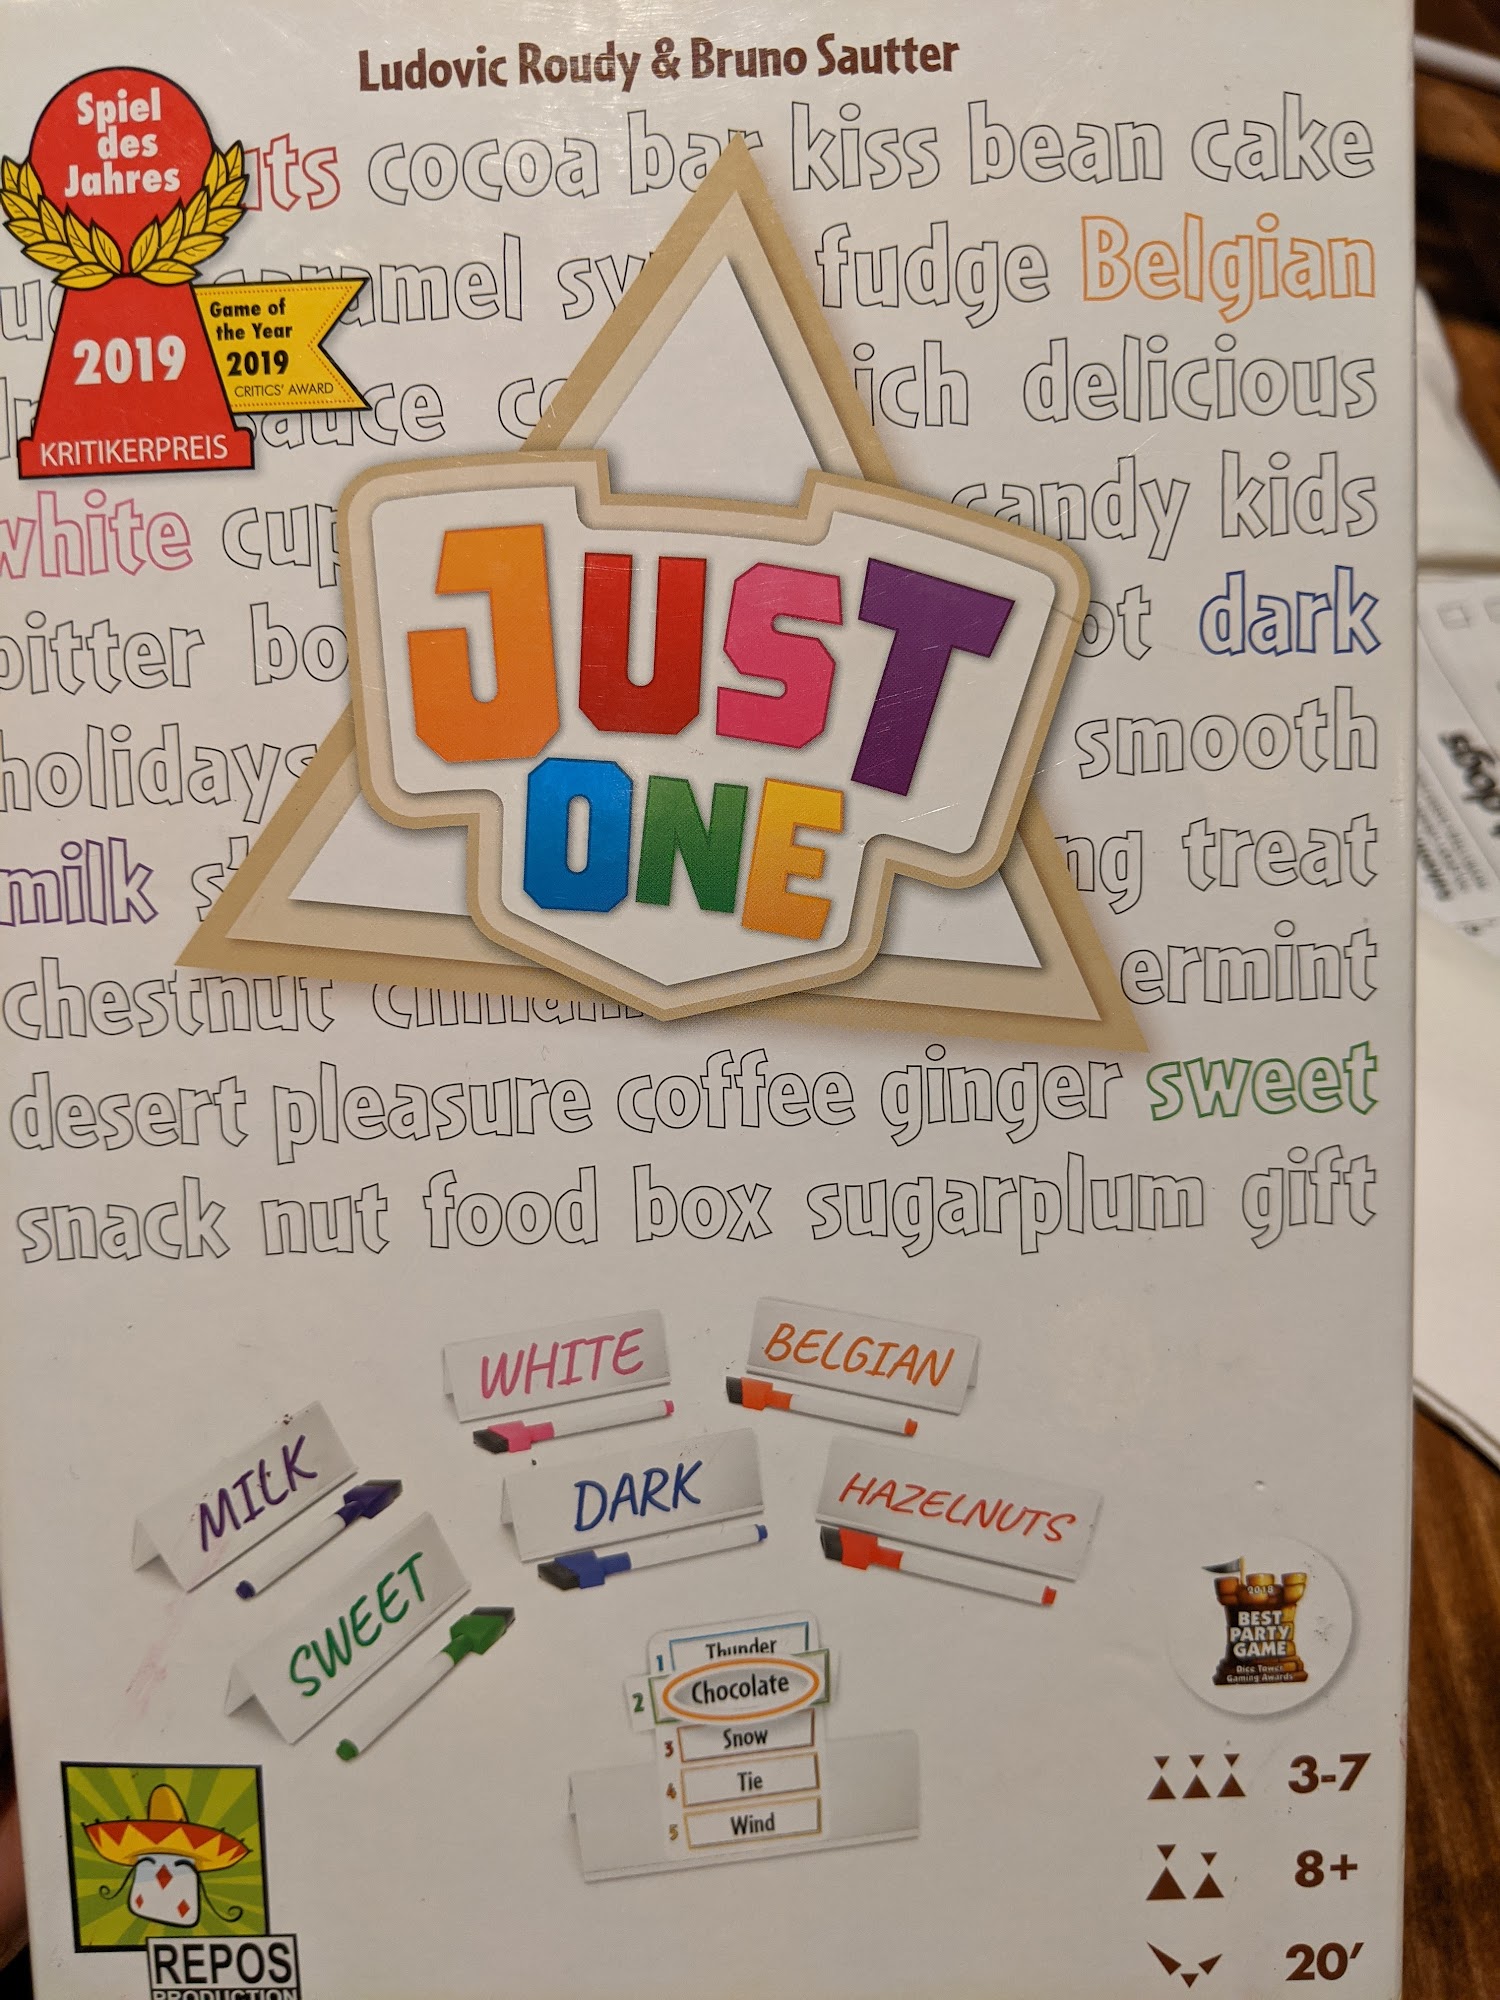 Ludovic Roudy & Bruno Sautter
Spiel
des
Jahres
2019
KRITIKERPREIS
Game of
the Year
2019
CRITICS' AWARD
cocoa bar kiss bean cake
fudge Belgian
delicious
white candy kids
bitter dark
holidays smooth
milk treat
chestnut
desert pleasure coffee ginger sweet
snack nut food box sugarplum gift
JUST
ONE
WHITE
BELGIAN
MILK
DARK
HAZELNUTS
SWEET
1 Thunder
2 Chocolate
3 Snow
4 Tie
5 Wind
2018
BEST
PARTY
GAME
Dice Tower
Gaming Awards
3-7
8+
20′
REPOS
PRODUCTION